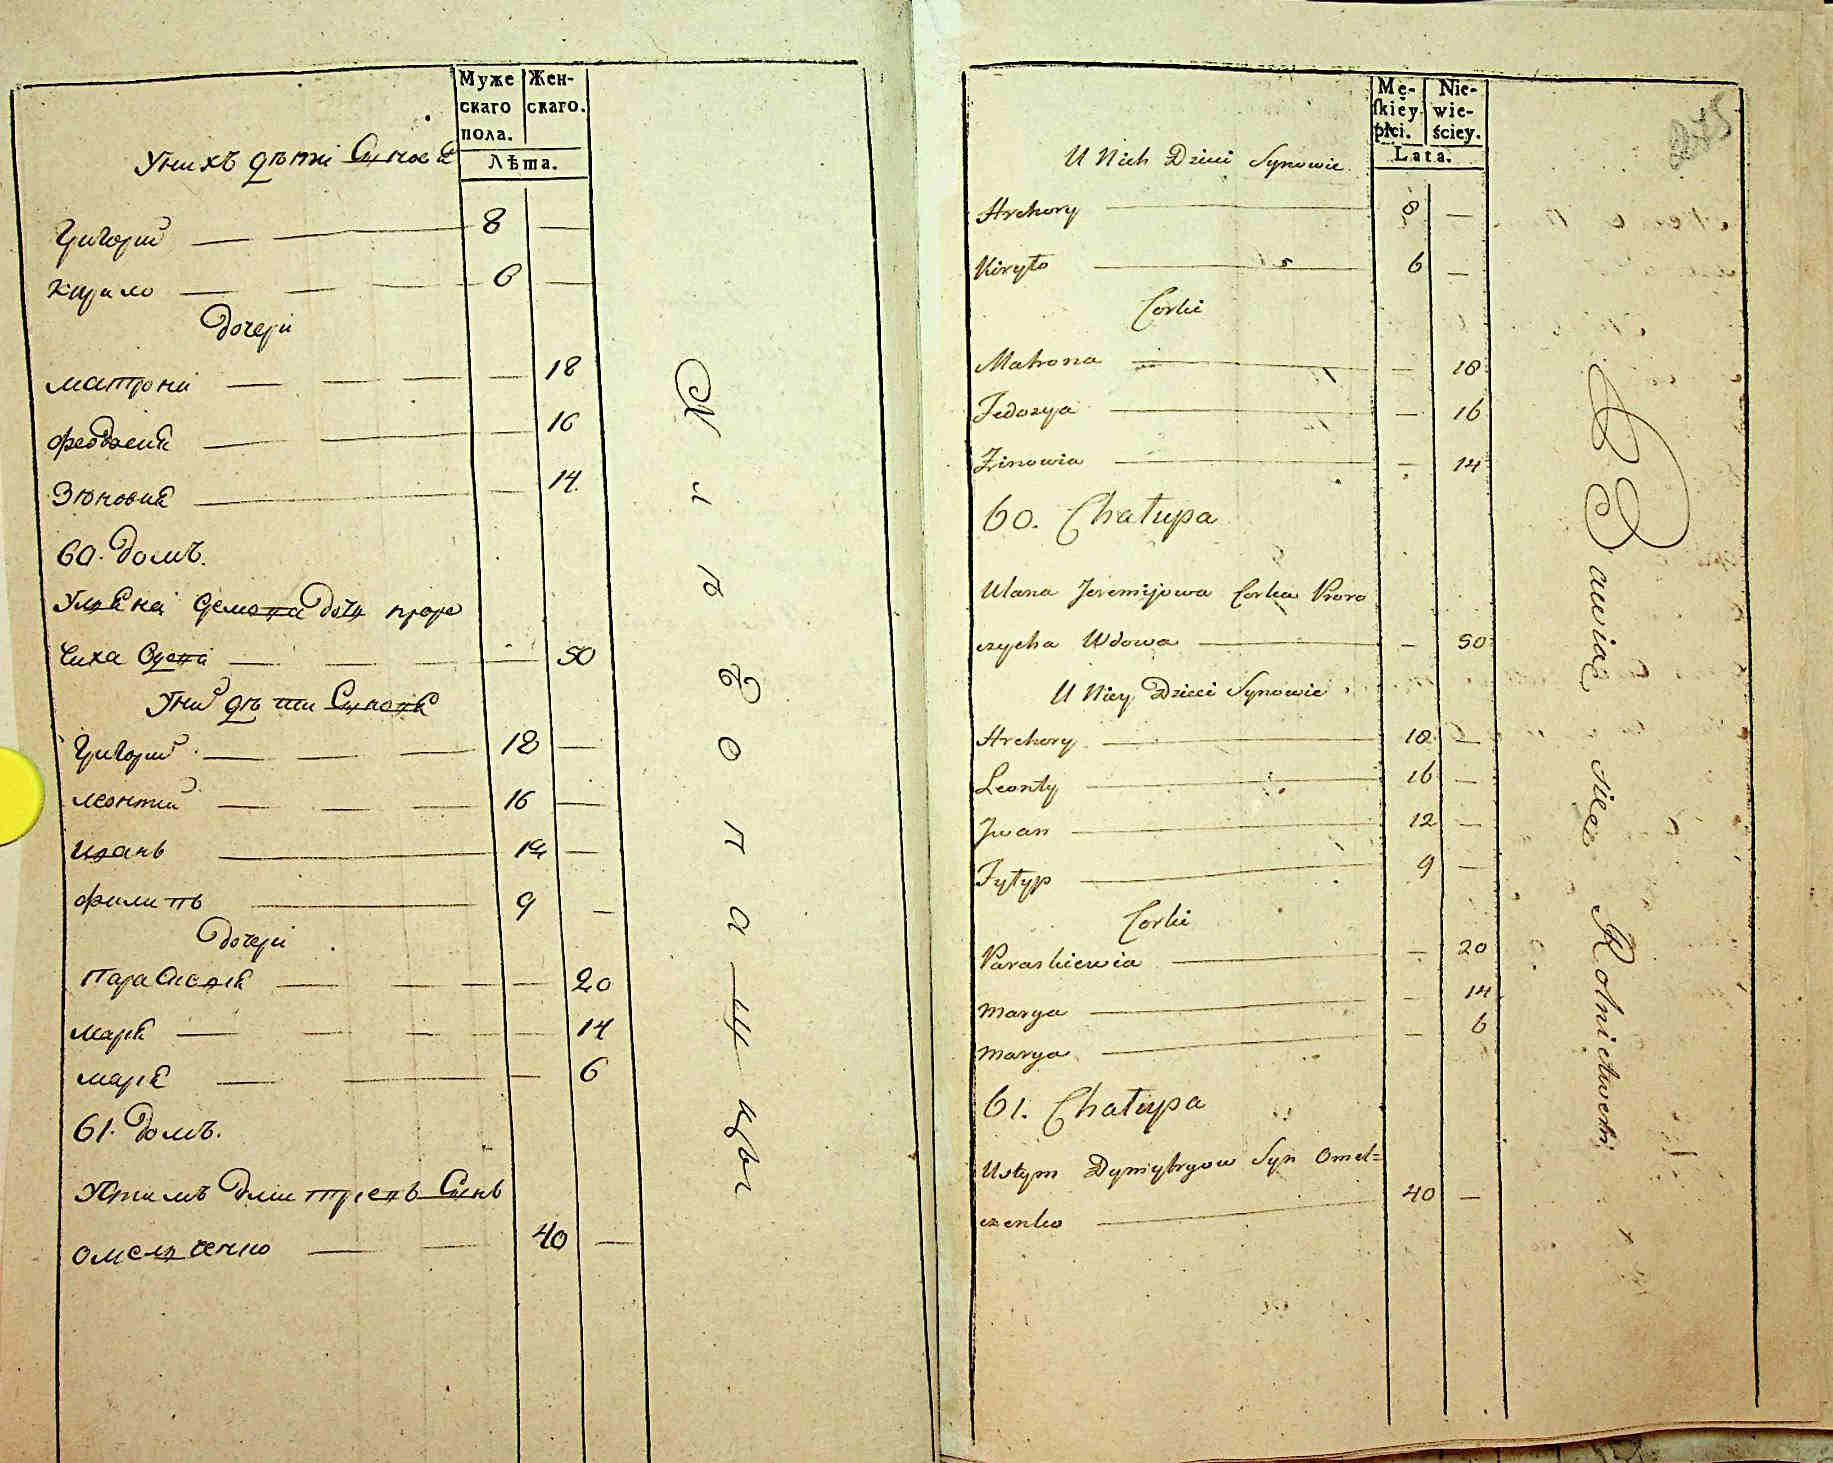 Муже
скаго
пола.
Жен-
скаго.
Лѣта.
У нихъ дѣти Синове
Григорий 8
Кирило 6
Дочери
Матрона 18
Феодосия 16
Зѣновия 14
60. Домъ.
Уляна Демяна Дочь проро
чиха Вдова 50
У ний дѣти Синове
Григорий 18
Леонтий 16
Иванъ 12
Филипъ 9
Дочери
Параскевия 20
Мария 14
Мария 6
61. Домъ.
Устимъ Дмитриевъ Синъ
Омелянченко 40
Хлѣбопашцы
Mę-
skiéy
płci.
Nie-
wie-
ściey.
Lata.
U Nich Dzieci Synowie
Hrehory 8
Kiryło 6
Corki
Matrona 18
Fedozya 16
Zinowia 14
60. Chałupa
Ulana Jeremijowa Corka Proro
czycha Wdowa 50
U Niey Dzieci Synowie
Hrehory 18
Leonty 16
Jwan 12
Fyłyp 9
Corki
Paraskiewia 20
Marya 14
Marya 6
61. Chałupa
Ustym Dymytryow Syn Omel=
czenko 40
Bawiąć się Rolnictwem